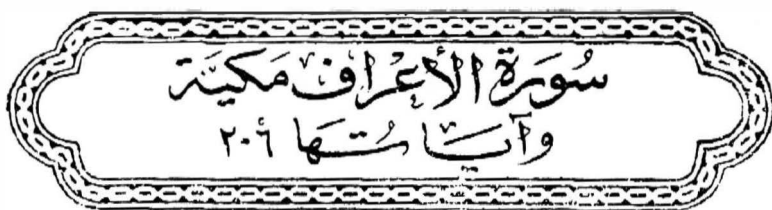 سُورَة الأَعْرَاف مَكيَّة
وآيَاتُهَا ٢٠٦